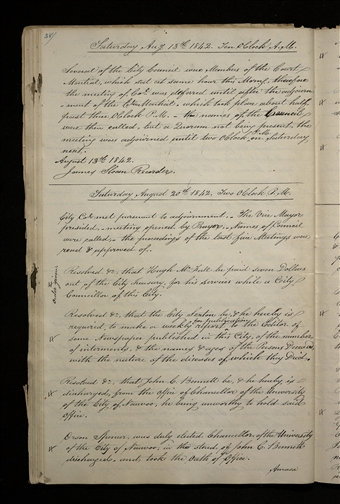 Saturday Aug 13th 1842. Ten O'Clock A.M.
Several of the City Council were Members of the Court
Martial, which sat at same hour this Morng, therefore
the meeting of Col. was deferred until after the adjourn
ment of the Ct. Martial, which took place about half
past three O'Clock P.M. - the names of the Council
were then called, but a Quorum not being present, the
meeting was adjourned until two O'Clock P.M. on Saturday
next.
August 13th 1842.
James Sloan Recorder.
Saturday August 20th 1842. Two O'Clock P.M.
City Col. met pursuant to adjournment. - The Vice Mayor
presided. meeting opened by Prayer. Names of Council
were called. the proceedings of the last five Meetings were
read & approved of.
Resolved &c. that Hugh McFall be paid seven Dollars
out of the City Treasury, for his service while a City
Councillor of this City.
Resolved &c. that the City Sexton be, & he hereby is
required to make a weekly report for publication to the Editor of
some Newspaper published in this City, of the number
of interments, & the names & ages of the Persons Deceased
with the nature of the diseases of which they Died.
Resolved &c. that John C. Bennett be, & he hereby is
discharged, from the office of Chancellor of the University
of the City of Nauvoo, he being unworthy to hold said
office.
Orson Spencer, was duly elected Chancellor of the University
of the City of Nauvoo, in the stead of John C. Bennett
discharged, and took the Oath of Office.
Amasa